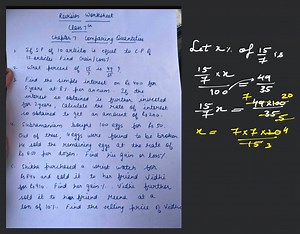 Revision Worksheet
Class 7th
Chapter 7 Comparing Quantities
1. If S.P of 10 articles is equal to C.P of
12 articles. Find Gain/Loss%
What percent of 15/7 is 49/35 ?
Find the simple interest on Rs 400 for
5 years at 6% per annum. If the
interest so obtained is further invested for
2 years, Calculate the rate of interest
to get an amount of Rs
bought 100 eggs for Rs
Out of these 4 eggs were found to be broken
He sold the remaining eggs at the rate of
per dozen. Find his gain or loss%
purchased a wrist water for
and sold it to her friend Vidhi
for Find her gain%. Vidhi further
sold it to her friend Meena at a
loss of 10%. Find the selling price of Vidhi
Let x% of 15/7 is
15/7 × x/100 = 49/35
15/7 x = 49×100/35 20 5
x = 7×7×20 4/15 3